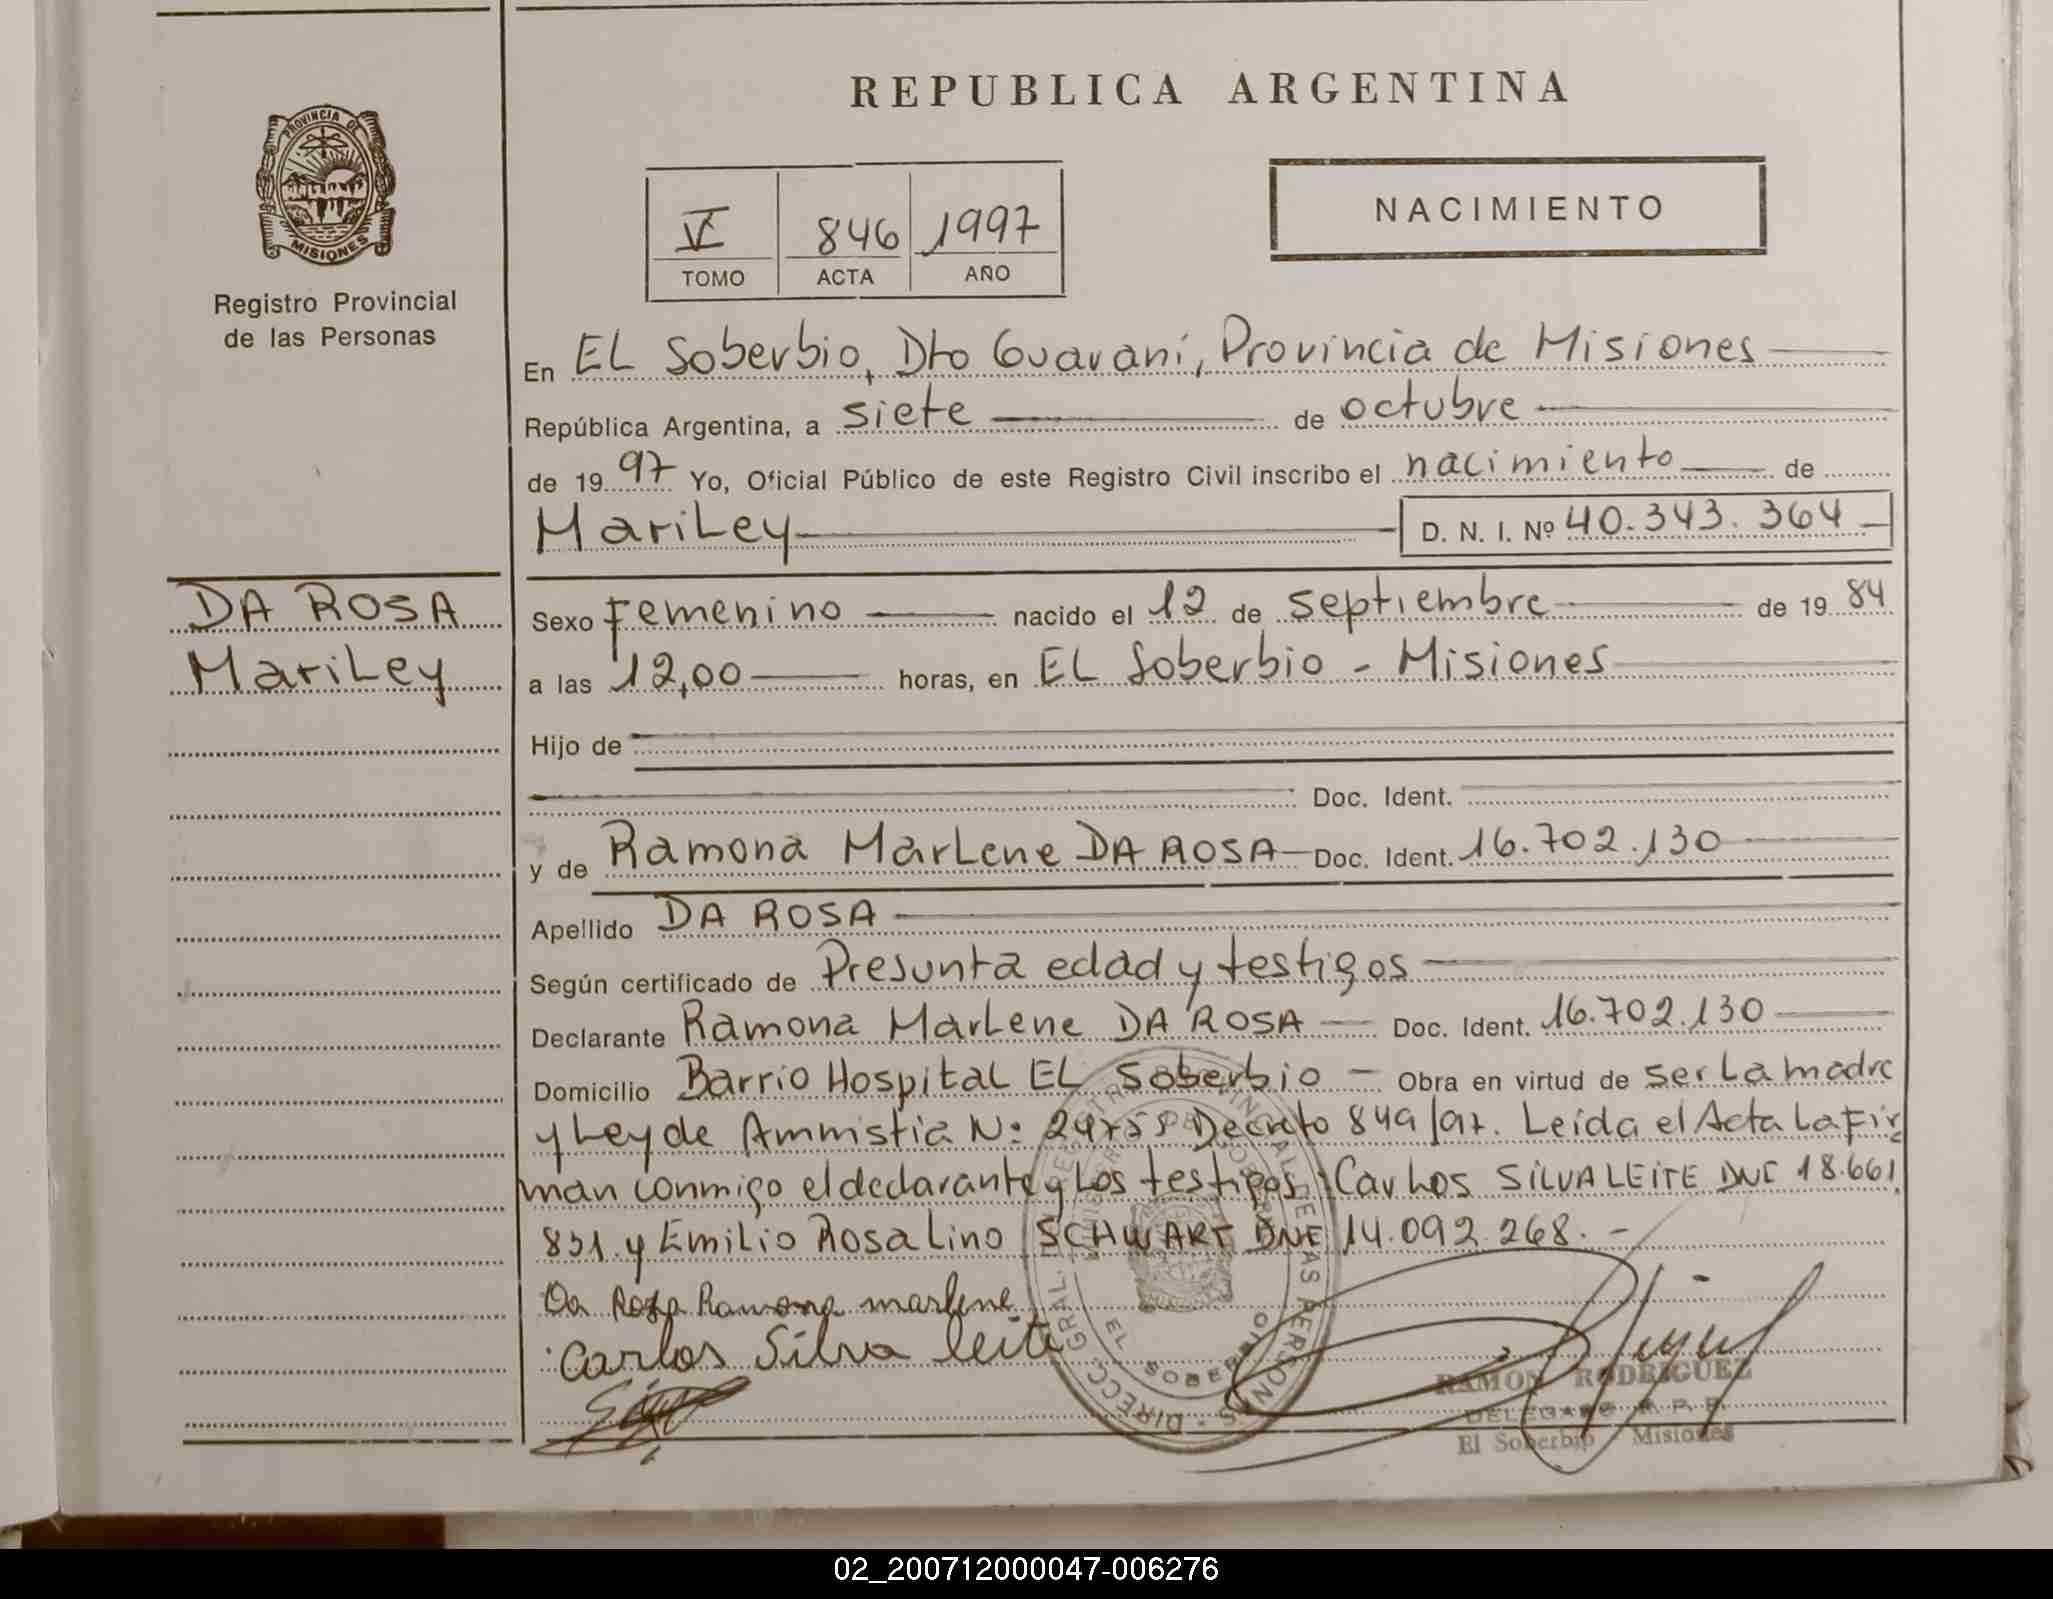 REPUBLICA ARGENTINA
PROVINCIA DE
MISIONES
Registro Provincial
de las Personas
V 846 1997
TOMO ACTA AÑO
NACIMIENTO
En EL Soberbio, Dto Guaraní, Provincia de Misiones
República Argentina, a siete de octubre
de 19 97 Yo, Oficial Público de este Registro Civil inscribo el nacimiento de
MariLey D. N. I. Nº 40.343.364
DA ROSA
MariLey
Sexo Femenino nacido el 12 de septiembre de 19 84
a las 12,00 horas, en EL Soberbio - Misiones
Hijo de
Doc. Ident.
y de Ramona MarLene DA ROSA Doc. Ident. 16.702.130
Apellido DA ROSA
Según certificado de Presunta edad y testigos
Declarante Ramona MarLene DA ROSA Doc. Ident. 16.702.130
Domicilio Barrio HospitaL EL Soberbio - Obra en virtud de ser La madre
y Ley de Amnistia Nº Decreto 849/97. Leída el Acta La Fir
man conmigo el declarante y Los testigos: CarLos SILVA LEITE DNI 18.661.
831. y EmiLio RosaLino SCHWART DNI 14.092.268. -
Da Rosa Ramona marlene
Carlos Silva leite
DIRECC. GRAL. PROVINCIAL DE LAS PERSONAS
EL SOBERBIO
RAMON RODRIGUEZ
DELEGADO R. P. P.
El Soberbio Misiones
02_200712000047-006276